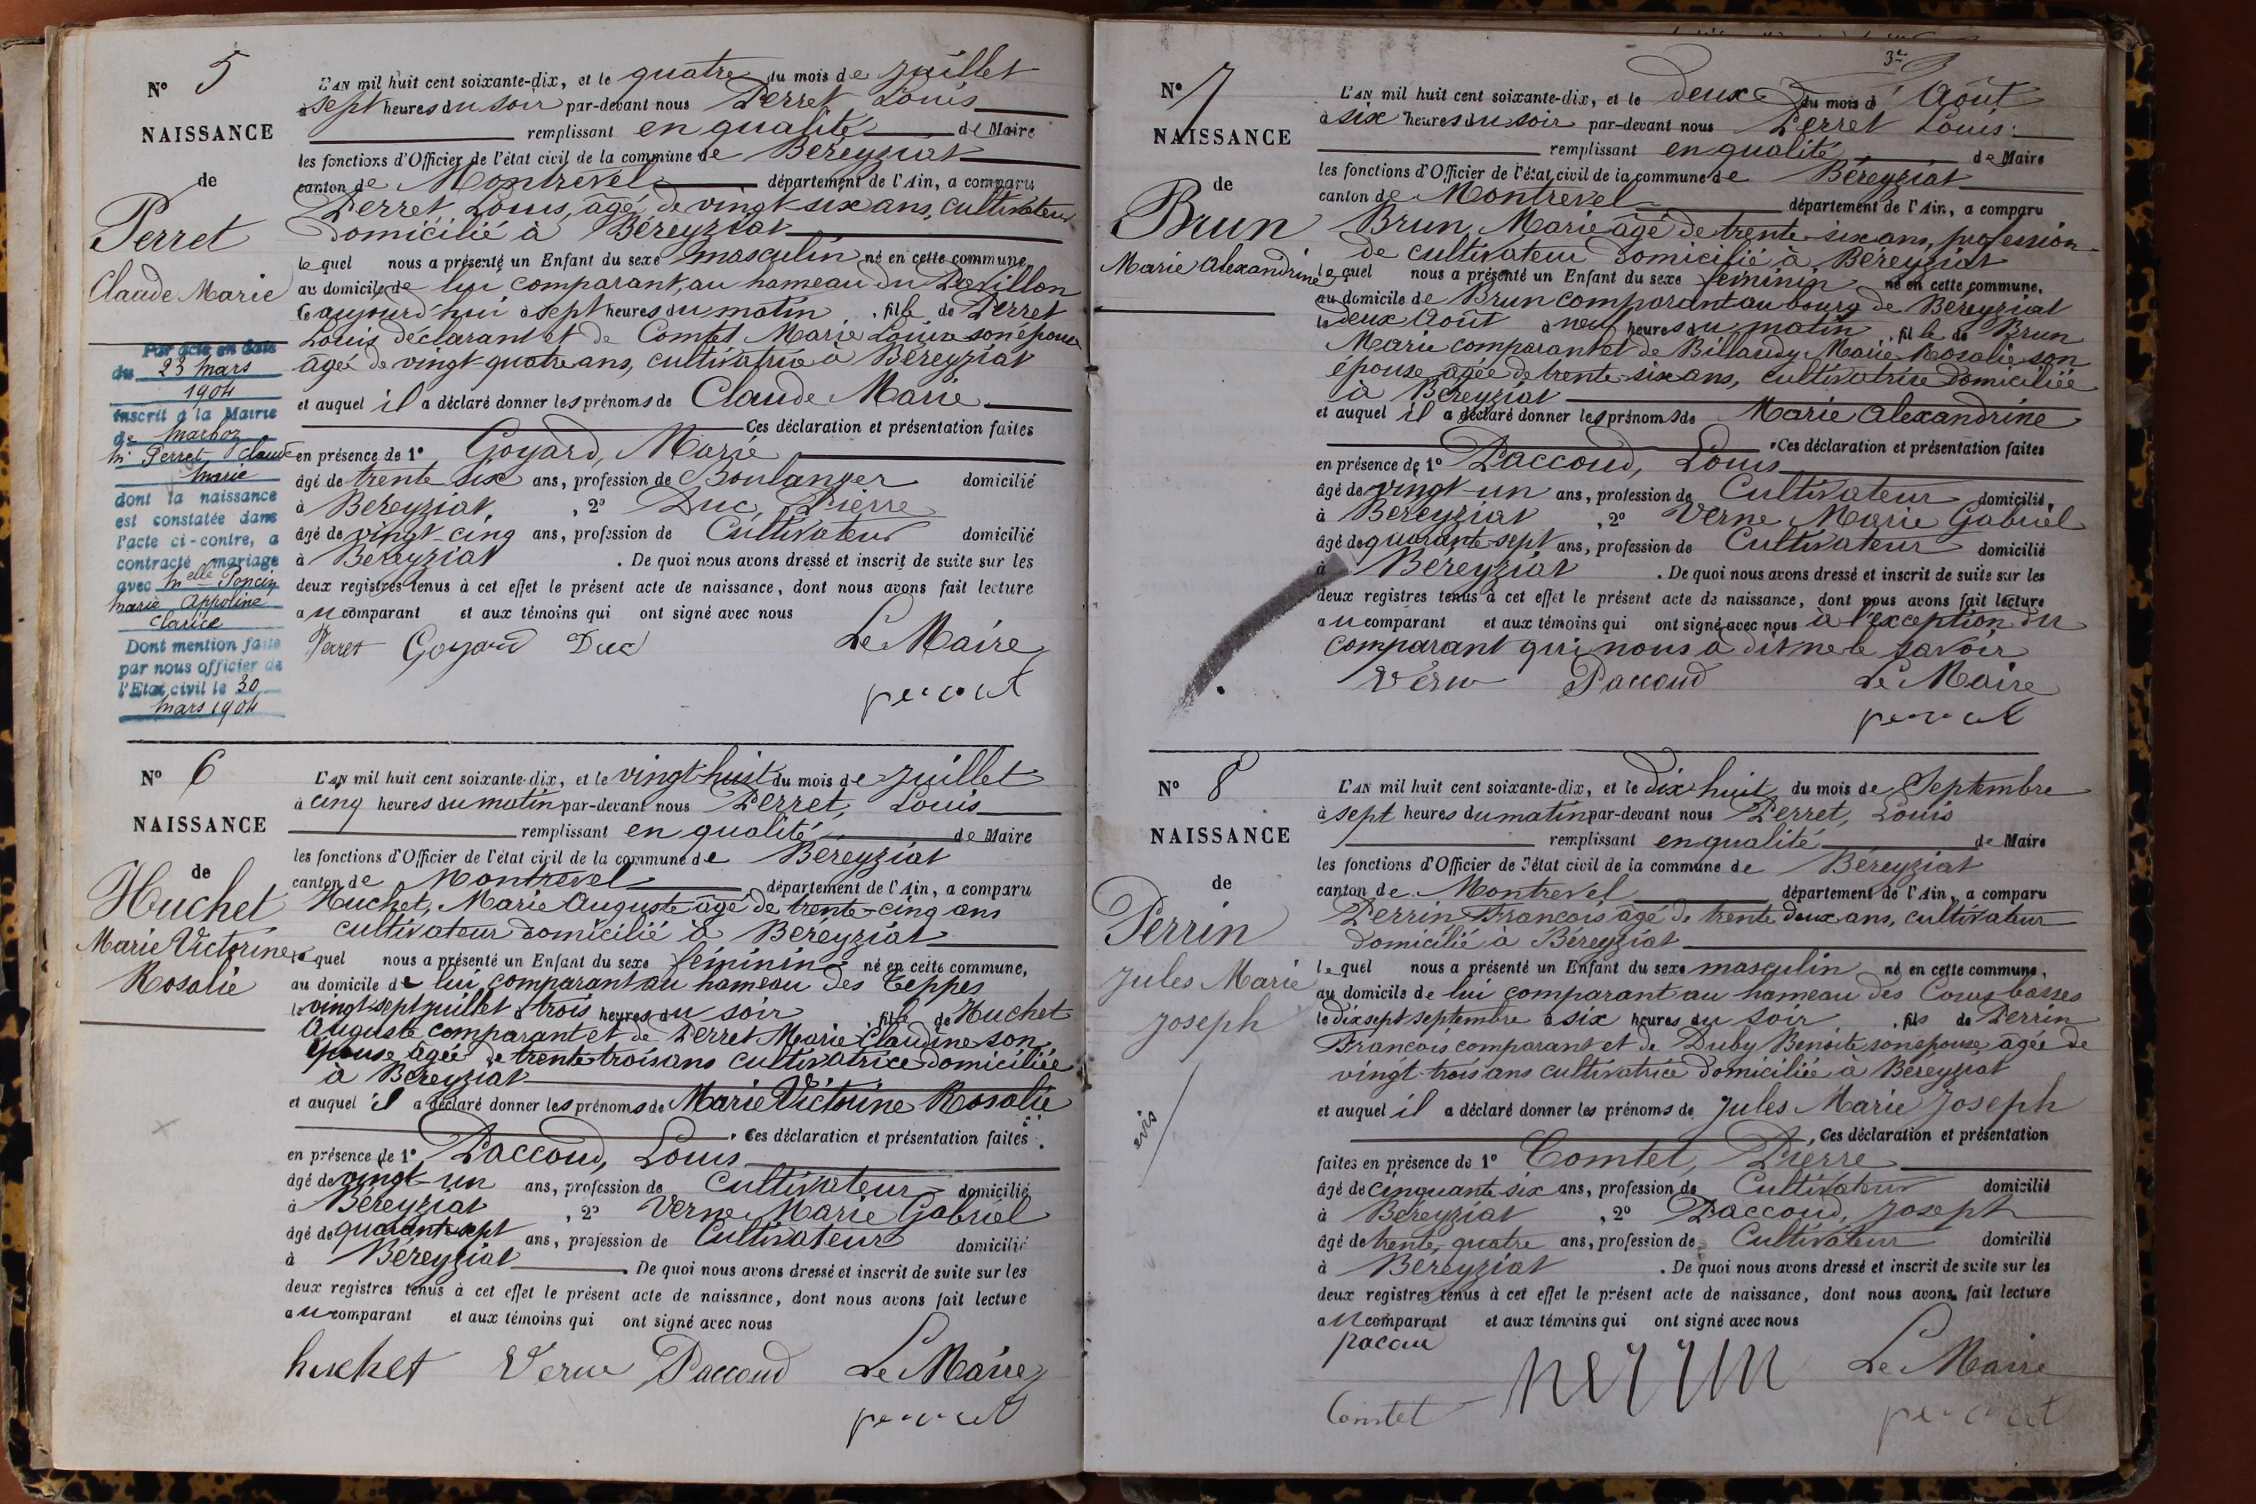 N° 5
NAISSANCE
de
Perret
Claude Marie
Par acte en date
du 23 mars
1904
inscrit à la Mairie
de Marboz
Mr Perret Claude
Marie
dont la naissance
est constatée dans
l'acte ci-contre, a
contracté mariage
avec Melle Poncin
Marie Appoline
Clarice
Dont mention faite
par nous officier de
l'Etat civil le 30
mars 1904
L'AN mil huit cent soixante-dix, et le quatre du mois de Juillet
à sept heures du soir par-devant nous Perret, Louis
remplissant en qualité de Maire
les fonctions d'Officier de l'état civil de la commune de Béréyziat
canton de Montrevel département de l'Ain, a comparu
Perret Louis, âgé de vingt-six ans, cultivateur
domicilié à Béréyziat
lequel nous a présenté un Enfant du sexe masculin né en cette commune,
au domicile de lui comparant, au hameau du Pavillon
le aujourd'hui à sept heures du matin, fils de Perret
Louis déclarant et de Comtet Marie Louise son épouse
âgée de vingt-quatre ans, cultivatrice à Béreyziat
et auquel il a déclaré donner les prénoms de Claude Marie
Ces déclaration et présentation faites
en présence de 1° Goyard, Marie
âgé de trente six ans, profession de Boulanger domicilié
à Béreyziat, 2° Duc, Pierre
âgé de vingt-cinq ans, profession de Cultivateur domicilié
à Béreyziat. De quoi nous avons dressé et inscrit de suite sur les
deux registres tenus à cet effet le présent acte de naissance, dont nous avons fait lecture
au comparant et aux témoins qui ont signé avec nous
Perret Goyard Duc Le Maire
perret
N° 6
NAISSANCE
de
Huchet
Marie Victorine
Rosalie
L'AN mil huit cent soixante-dix, et le vingt-huit du mois de Juillet
à cinq heures du matin par-devant nous Perret, Louis
remplissant en qualité de Maire
les fonctions d'Officier de l'état civil de la commune de Béreyziat
canton de Montrevel département de l'Ain, a comparu
Huchet, Marie Auguste âgé de trente-cinq ans
cultivateur domicilié à Béreyziat
lequel nous a présenté un Enfant du sexe féminin né en cette commune,
au domicile de lui comparant au hameau des Teppes
le vingt-sept juillet à trois heures du soir, fille de Huchet
Auguste comparant et de Perret Marie Claudine son
épouse âgée de trente trois ans cultivatrice domiciliée
à Béreyziat
et auquel il a déclaré donner les prénoms de Marie Victorine Rosalie
Ces déclaration et présentation faites
en présence de 1° Paccoud, Louis
âgé de vingt-un ans, profession de Cultivateur domicilié
à Béreyziat, 2° Verne Marie Gabriel
âgé de quarante sept ans, profession de Cultivateur domicilié
à Béréyziat. De quoi nous avons dressé et inscrit de suite sur les
deux registres tenus à cet effet le présent acte de naissance, dont nous avons fait lecture
au comparant et aux témoins qui ont signé avec nous
huchet Verne Paccoud Le Maire
perret
N° 7
NAISSANCE
de
Brun
Marie Alexandrine
L'AN mil huit cent soixante-dix, et le deux du mois d'Août
à six heures du soir par-devant nous Perret Louis
remplissant en qualité de Maire
les fonctions d'Officier de l'état civil de la commune de Béreyziat
canton de Montrevel département de l'Ain, a comparu
Brun, Marie âgé de trente-six ans, profession
de cultivateur domicilié à Béreyziat
lequel nous a présenté un Enfant du sexe féminin né en cette commune,
au domicile de Brun comparant au bourg de Béreyziat
le deux Août à neuf heures du matin, fille de Brun
Marie comparant et de Billaudy Marie Rosalie son
épouse âgée de trente-six ans, cultivatrice domiciliée
à Béreyziat
et auquel il a déclaré donner les prénoms de Marie Alexandrine
Ces déclaration et présentation faites
en présence de 1° Paccoud, Louis
âgé de vingt-un ans, profession de Cultivateur domicilié,
à Béreyziat, 2° Verne Marie Gabriel
âgé de quarante-sept ans, profession de Cultivateur domicilié
à Béreyziat. De quoi nous avons dressé et inscrit de suite sur les
deux registres tenus à cet effet le présent acte de naissance, dont nous avons fait lecture
au comparant et aux témoins qui ont signé avec nous à l'exception du
comparant qui nous a dit ne le savoir
Verne Paccoud Le Maire
perret
N° 8
NAISSANCE
de
Perrin
Jules Marie
Joseph
L'AN mil huit cent soixante-dix, et le dix huit du mois de Septembre
à sept heures du matin par-devant nous Perret, Louis
remplissant en qualité de Maire
les fonctions d'Officier de l'état civil de la commune de Béreyziat
canton de Montrevel département de l'Ain, a comparu
Perrin François âgé de trente deux ans, cultivateur
domicilié à Béreyziat
lequel nous a présenté un Enfant du sexe masculin né en cette commune,
au domicile de lui comparant au hameau des Cours basses
le dix sept septembre à six heures du soir, fils de Perrin
François comparant et de Duby Benoite son épouse, âgée de
vingt-trois ans cultivatrice domiciliée à Béreyziat
et auquel il a déclaré donner les prénoms de Jules Marie Joseph
Ces déclaration et présentation
faites en présence de 1° Comtet, Pierre
âgé de cinquante six ans, profession de Cultivateur domicilié
à Béreyziat, 2° Paccoud, Joseph
âgé de trente-quatre ans, profession de Cultivateur domicilié
à Béreyziat. De quoi nous avons dressé et inscrit de suite sur les
deux registres tenus à cet effet le présent acte de naissance, dont nous avons fait lecture
au comparant et aux témoins qui ont signé avec nous
pacoud
Comtet perrin Le Maire
perret